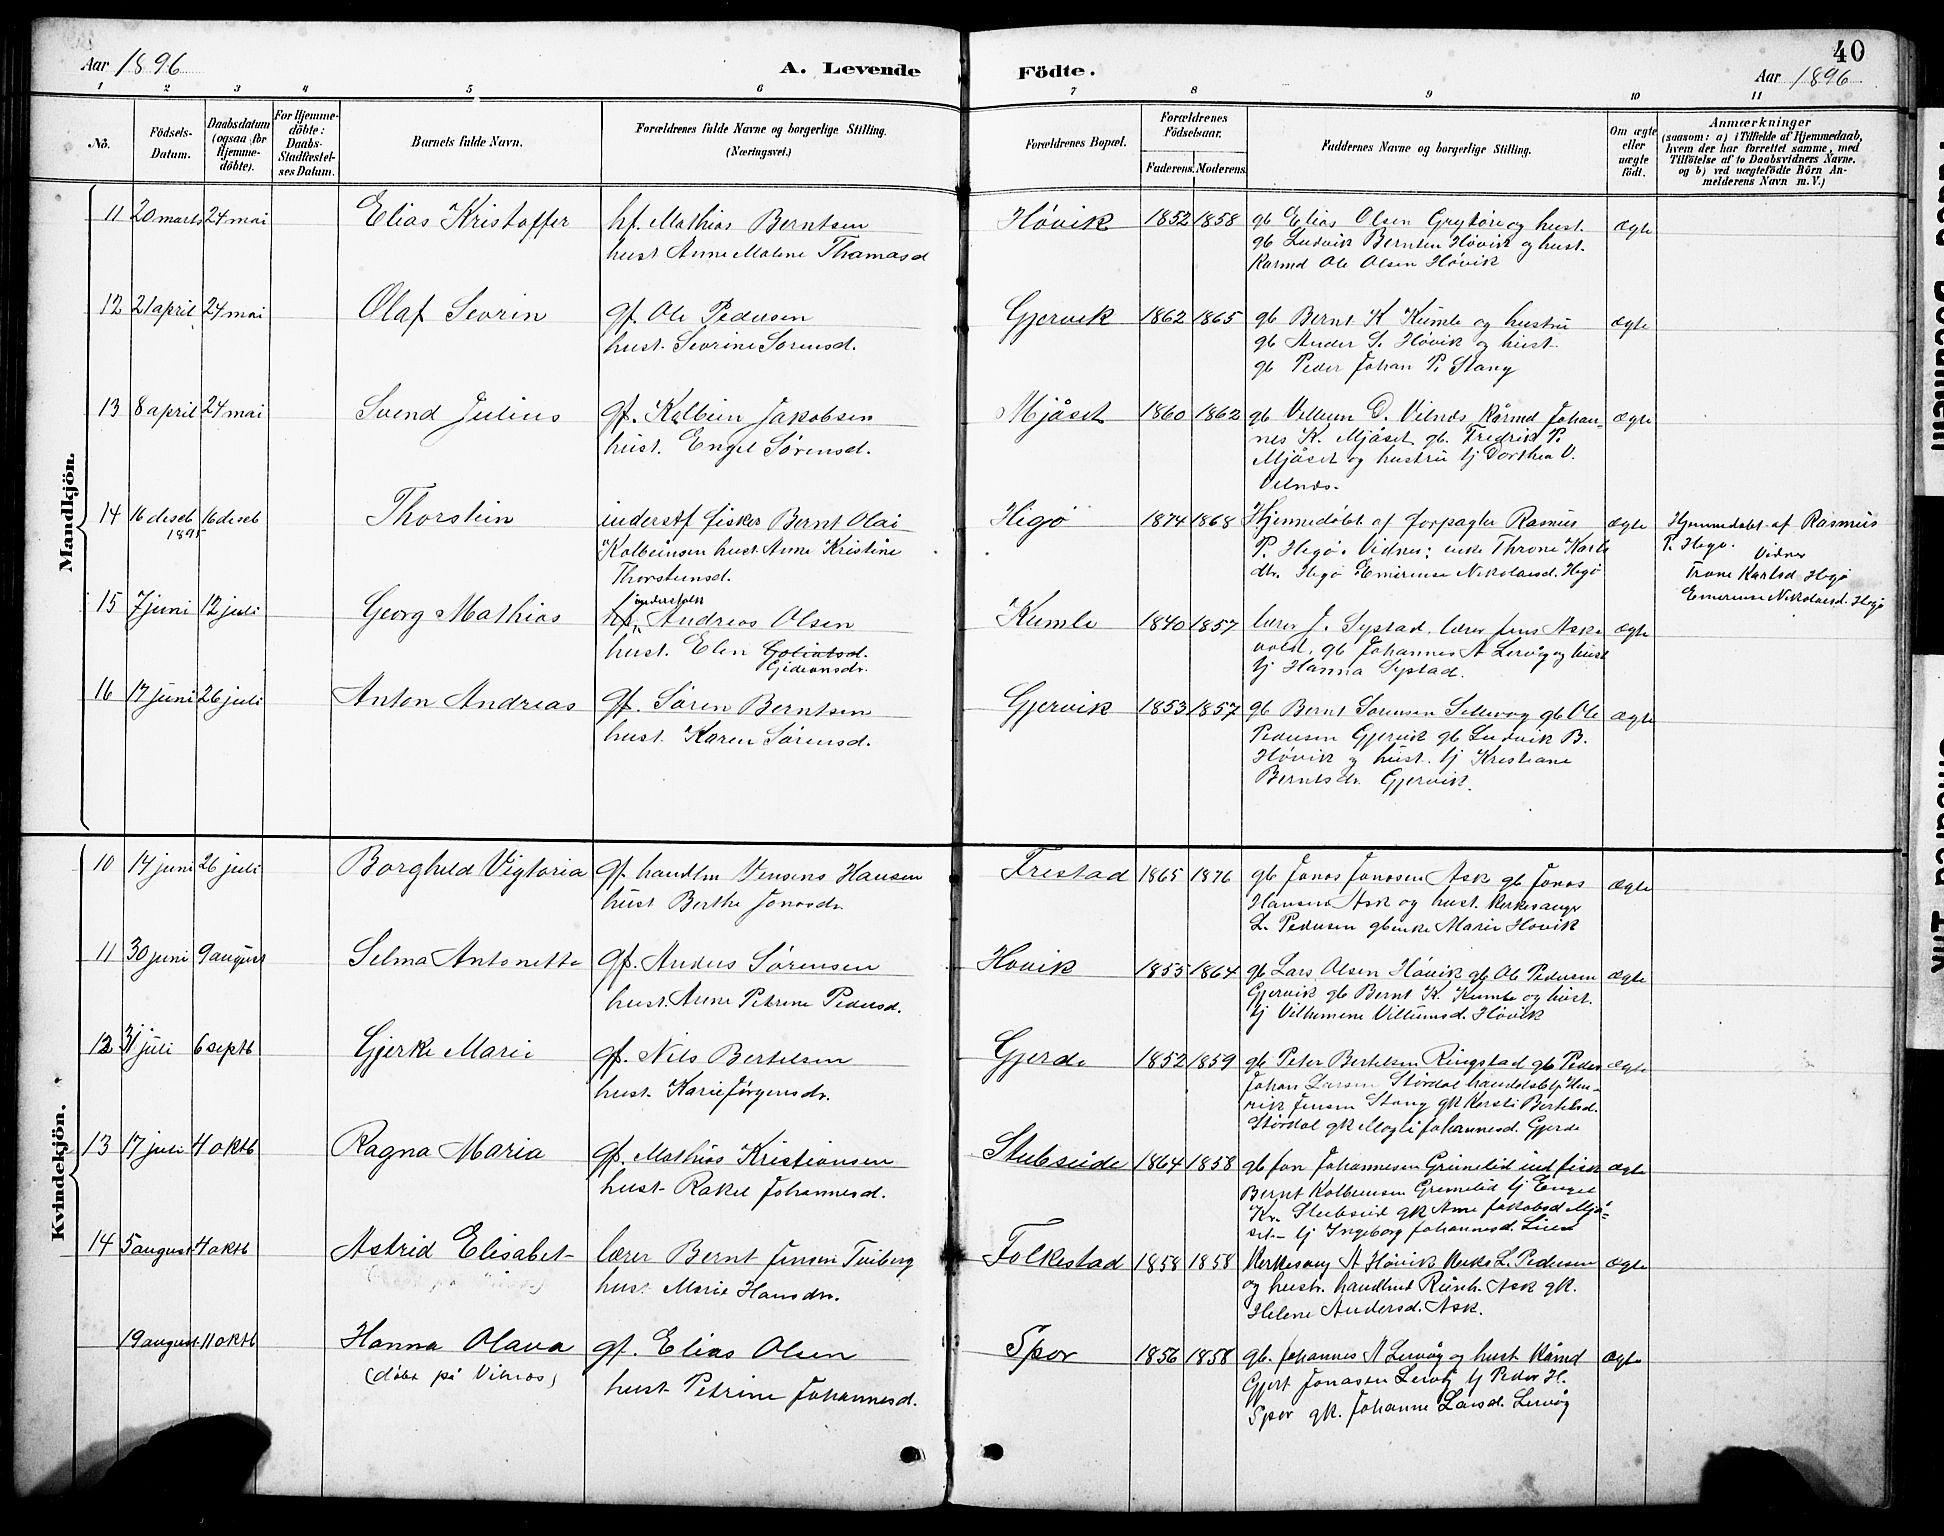 Aar 1896
A. Levende
Födte.
Aar 1896
40
1 2 3 4 5 6 7 8 9 10 11
No.
Födsels-
Datum.
Daabsdatum
(ogsaa for
Hjemme-
döbte).
For Hjemme-
döbte:
Daabs-
Stadfæstel-
ses Datum.
Barnets fulde Navn.
Forældrenes fulde Navne og borgerlige Stilling.
(Næringsvei.)
Forældrenes Bopæl.
Forældrenes
Födselsaar.
Faderens. Moderens.
Faddernes Navne og borgerlige Stilling.
Om ægte
eller
uægte
födt.
Anmærkninger
(saasom: a) i Tilfælde af Hjemmedaab,
hvem der har forrettet samme, med
Tilföielse af to Daabsvidners Navne.
og b) ved uægtefödte Börn An-
melderens Navn m. V.)
Mandkjön.
11 20 marts 24 mai Elias Kristoffer hf. Mathias Berntsen
hust Anne Malene Thomasd
Høvik 1852 1858 gb Elias Olsen Grytöre og hust.
gb Ludvik Berntsen Høvik og hust.
Kårmd Ole Olsen Høvik
ægte
12 21 april 24 mai Olaf Sevrin gf. Ole Pedersen
hust. Sevrine Sørensd.
Gjervik 1862 1865 gb Bernt K Kumle og hustru
gb Ander S. Høvik og hust.
gb Peder Johan P. Stang
ægte
13 8 april 24 mai Svend Julius gf. Kolbein Jakobsen
hust. Engel Sørensd.
Mjåset 1860 1862 gb Villum D. Vilnæs Kårmd Johan-
nes K. Mjåset gb. Fredrik P.
Mjåset og hustru tj Dorthea V.
Vilnæs.
ægte
14 16 deseb 16 deseb
1895
Thorstein inderst fisker Bernt Olai
Kolbeinsen hust Anne Kristine
Thorsteinsd.
Hegø 1874 1868 Hjemmedøbt af forpagter Rasmus
P. Hegø. Vidner: enke Throne Karls
dr. Hegø Emerense Nikolaisd. Hegø
ægte
Hjemmedøbt af Rasmus
P. Hegø. Vidner
Trone Karlsd Hegø
Emerense Nikolaisd. Hegø
15 7 juni 12 juli Georg Mathias hf. Andreas Olsen
inderfolk
hust. Elen Goliatsd.
Gideonsdr.
Kumle 1840 1857 lærer J. Systad, lærer Jens Aske
vold, gb Johannes A Lervåg og hust
tj Hanna Systad.
ægte
16 17 juni 26 juli Anton Andreas gf. Søren Berntsen
hust. Karen Sørensd.
Gjervik 1853 1857 gb Bernt Sørensen Sellevog gb Ole
Pedersen Gjervik gb Ludvik B.
Høvik og hust. tj Kristiane
Berntsdr. Gjervik.
ægte
Kvindekjön.
10 14 juni 26 juli Borghild Vigtoria gf. handlm Hansen
hust Berthe Jonasdr.
Frestad 1865 1876 gb Jonas Jonasen Ask gb Jonas
Hansen Ask og hust. Kerkesanger
L. Pedersen gb enke Marie Høvik
ægte
11 30 juni 9 august Selma Antonette gf. Anders Sørensen
hust. Anne Petrine Pedersd.
Høvik 1855 1864 gb Lars Olsen Høvik gb Ole Pedersen
Gjervik gb Bernt K. Kumle og hust.
tj Vilhemine Villumsd. Høvik
ægte
12 31 juli 6 septb Gjerke Marie gf. Nils Bertelsen
hust. Karie Jørgensdr.
Gjerde 1852 1859 gb Peter Bertelsen Ringstad gb Peder
Johan Larsen Stordal handelsbtj Hen-
rik Jensen Stang gk Kersti Bertelsd.
Stordal gk Magli Johannesd. Gjerde
ægte
13 17 juli 4 oktb Ragna Maria gf. Mathias Kristiansen
hust. Rakel Johannesd.
Stubseide 1864 1858 gb Jon Johannesen Grimelid ind fisk
Bernt Kolbeinsen Grimelid tj Engel
Kr. Stubseid gk Anne Jakobsd Mjå-
set tj Ingeborg Johannesd.
ægte
14 5 august 4 oktb Astrid Elisabet lærer Bernt Jensen
hust. Marie Hansdr.
Folkestad 1858 1858 Kerkesang A Høvik Kerks L. Pedersen
og hustr. handlend Ask gk.
Helene Andersd. Ask.
ægte
19 august 11 oktb Hanna Olava gf. Elias Olsen
(døbt på Vilnæs) hust. Petrine Johannesd.
Spor 1856 1858 gb. Johannes A Lervåg og hust Kårmd
Gjert Jonasen Lervåg tj Peder H.
Spor gk. Johanne Larsd. Lervåg
ægte